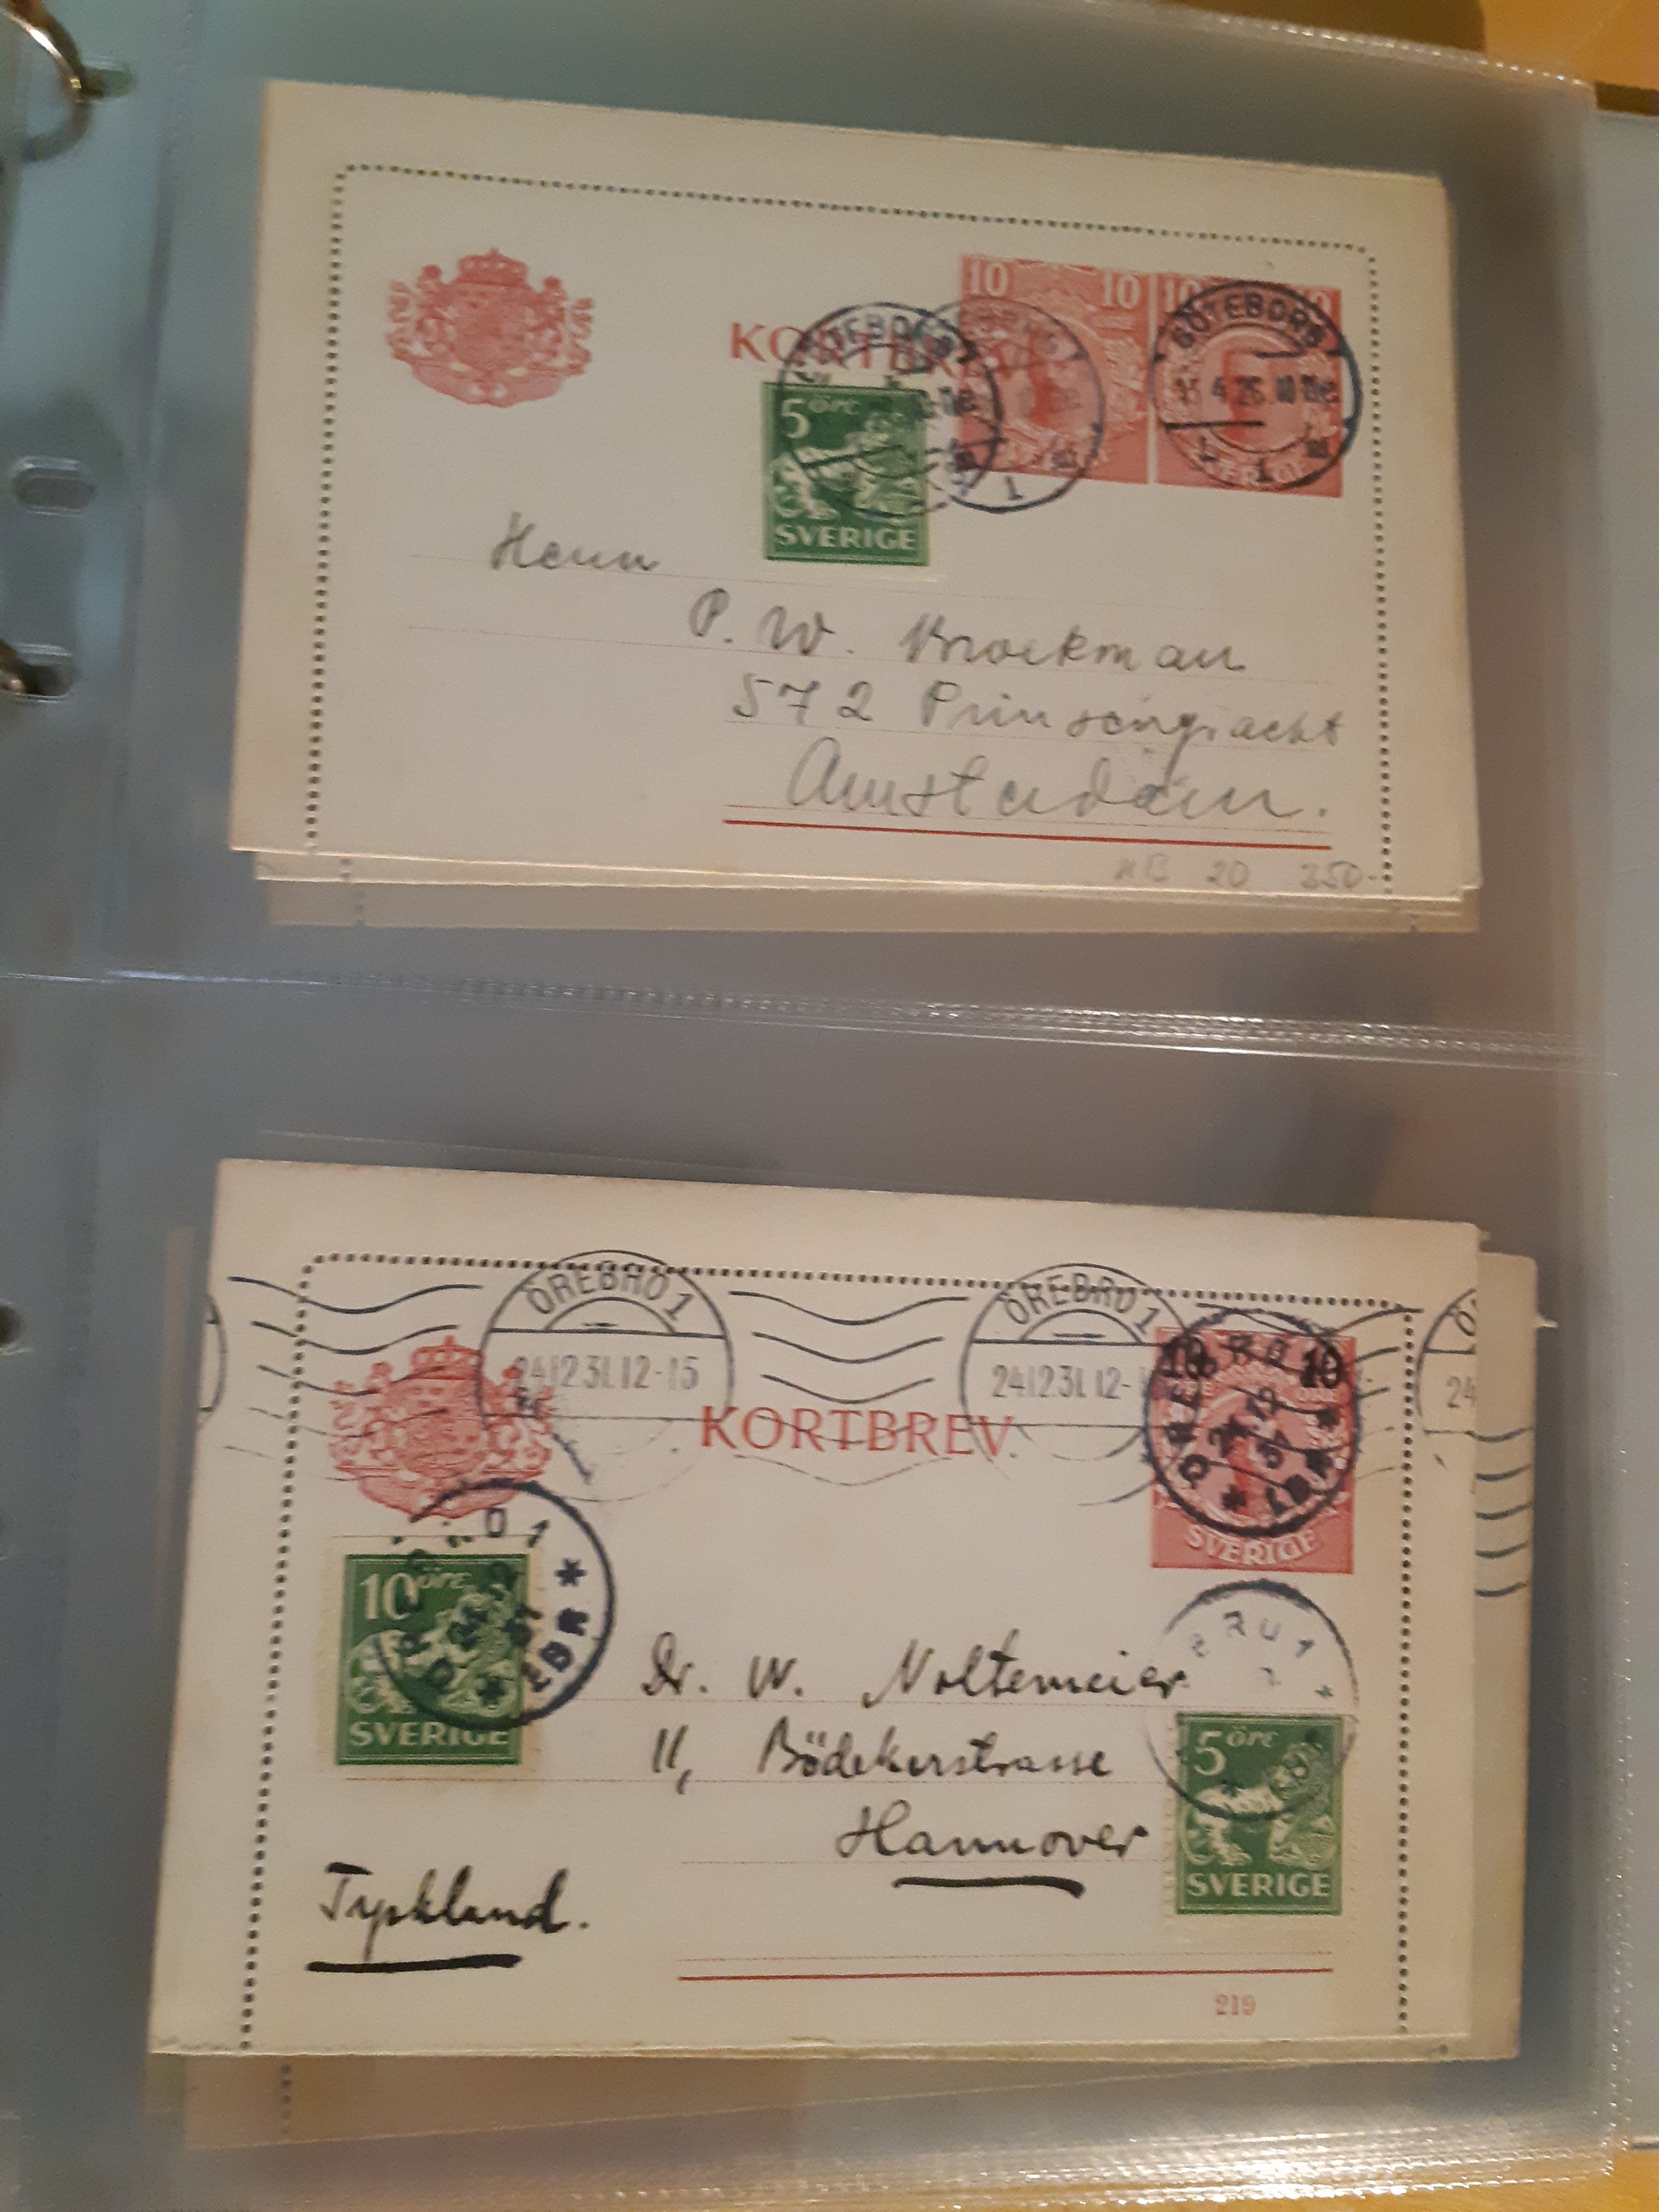 10 10 10
KORTBREV
GÖTEBORG
4 26
5 öre
SVERIGE
SVERIGE
Herrn
P. W. Brockman
572 Prinsengracht
Amsterdam.
KB 20 350-
ÖREBRO 1 ÖREBRO 1
24.12.31.12-15 24.12.31.12- 24
10 10
KORTBREV.
SVERIGE
10 öre
SVERIGE
Dr. W. Noltemeier
11, Bödekerstrasse
Hannover
5 öre
SVERIGE
Tyskland.
219